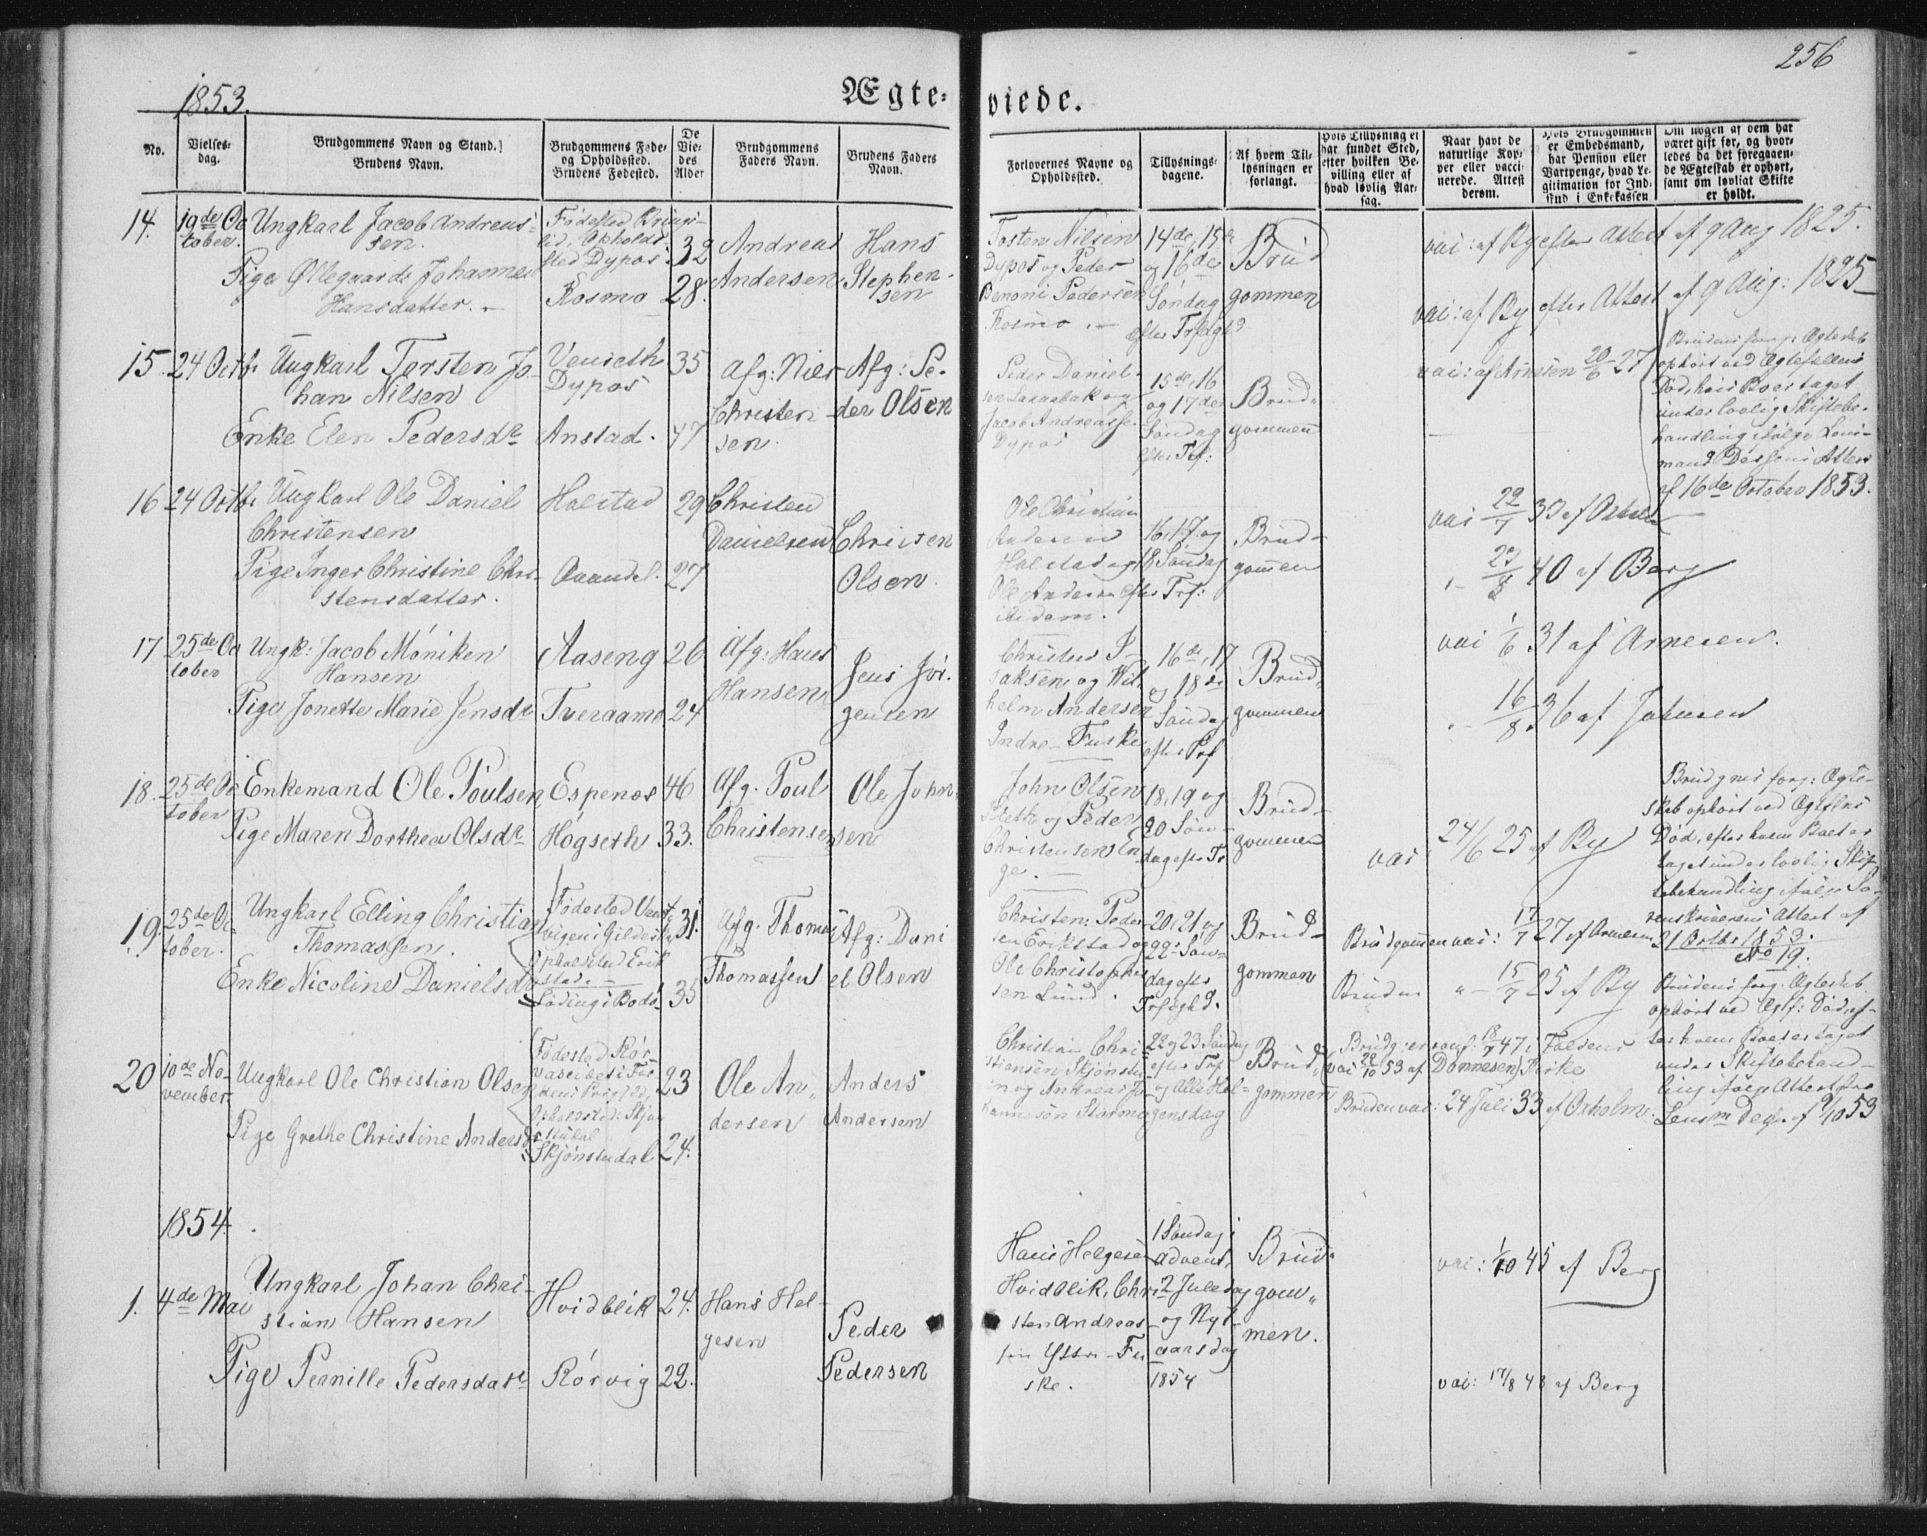 1853.
Ægte-
viede.
256
No.
Vielses-
dag.
Brudgommens Navn og Stand.
Brudens Navn.
Brudgommens Føde-
og Opholdssted.
Brudens Fødested.
De
Vie-
des
Alder
Brudgommens
Faders Navn.
Brudens Faders
Navn.
Forlovernes Navne og
Opholdssted.
Tillysnings-
dagene.
Af hvem Til-
lysningen er
forlangt.
Hvis Tillysning ei
har fundet Sted,
efter hvilken Be-
villing eller af
hvad lovlig Aar-
sag.
Naar havt de
naturlige Kop-
per eller vacci-
nerede. Attest
derom.
Hvis Brudgommen
er Embedsmand,
har Pension eller
Vartpenge, hvad Le-
gitimation for Ind-
skud i Enkekassen
Om nogen af dem har
været gift før, og hvor-
ledes da det foregaaen-
de Ægteskab er ophørt,
samt om lovligt Skifte
er holdt.
14.
19de Oc
tober.
Ungkarl Jacob Andreas-
sen.
Pige Ollegaarde Johanne
Hansdatter.
sted Dypos.
Kosmo
32
28.
Andreas
Andersen
Hans
Stephen-
sen
Tosten Nilsen
Dypos og Peder
Benoni Pedersen
Kosmo
14de, 15de
og 16de
Søndag
efter Trfgh?
Brud
gommen
vai: af By efter Attest af 9 Aug 1825.
vai: af By efter Attest af 9 Aug: 1825
15.
24 Octb
Ungkarl Torsten Jo-
han Nilsen
Enke Elen Pedersdr
Dypos
Anstad.
35
47
Afg: Niels
Christen-
sen.
Afg: Pe-
der Olsen
Peder Daniel-
Jacob Andreasse
Dypos
15de, 16
og 17de
Søndag
efter Trf:
Brud-
gommen
vai: af Arnesen 20/6 27
ophørt ved Ægtefellens
under lovlig Skiftebe-
af 16de October 1853.
16
24 Octb
Ungkarl Ole Daniel
Christensen
Pige Inger Christine Chri-
stensdatter.
Holstad
29
27
Christen
Danielsen
Christen
Olsen.
Ole Christian
Andersen
Holstad og
ibidem.
16, 17 og
18 Søndag
efter Trf:
Brud-
gommen
vai 22/7 33 af
40 af Berg
17
25de Oc
tober
Ungk: Jacob Møniken
Hansen
Pige Jonette Marie Jensdr
Aaseng
Tveraamo
26
24
Afg: Hans
Hansen
Jens Jør-
gensen
Christen I-
saksen og Wil-
helm Andersen
Indre-Fuske
16de, 17
og 18de
Søndag
efter Trf
Brud-
gommen
vai 1/6 31 af Arnesen.
16/8 36 af Johnsen
18.
25de Oc
tober
Enkemand Ole Poulsen
Pige Maren Dorthea Olsdr
Espenes
Høgseth
46
33.
Afg. Poul
Christensen
Ole John-
sen
John Olsen
og Peder
Christensen En
ge.
18, 19 og
20 Søn-
dag efter Tr
Brud-
gommen
vai 24/6 25 af By
Brudgms forg: Ægte-
Død, efter hvem Boet er
taget under lovlig Skif
tebehandling ifølge So-
renskriverens Attest af
21 Octbr 1853.
19.
25de Oc-
tober.
Ungkarl Elling Christian
Thomassen.
Enke Nicoline Danielsdr
vigen i Gildeska
Opholdsted Erik
stad
Løding i Bodø
31
35
Afg. Thomas
Thomassen
Afg: Dani
el Olsen
Christen Peder
sen Erikstad og
Ole Christophe
sen Lund.
20, 21 og
22 Søn-
dag efter
Trfoighd.
Brud-
gommen
Brudgommen vai: 17/7 27 af Arnesen
Bruden " 15/7 25 af By
No 19.
Brudens forg. Ægteskab
ophørt ved Ægtf: Død, ef-
ter hvem Boet er taget
under Skiftebehand-
ling ifølge Attest fra
20
10de No-
vember.
Ungkarl Ole Christian Olsen
Pige Grethe Christine Andersdr
Fødested Rør-
Skjønstudal
23
24.
Ole An-
dersen
Anders
Andersen
Christian Chri-
stiansen Skjønstu
en og Andreas Jo
hannesen Stormo
22 og 23 Søndag
efter Trf
og Alle Hel-
gensdag
Brud
gommen
Bruden vai: 24 Juli 33 af Oxholm
1854.
1.
4de Mai
Ungkarl Johan Chri-
stian Hansen
Pige Pernille Pedersdatr
Hvidblik
Rørvig
24.
22.
Hans Hel-
gesen
Peder
Pedersen
Hans Helgesen
Hvidblik, Chri
sten Andreas-
sen Yttre-Fu
ske.
1 Søndag i
Advent,
2 Juledag
og Nyt-
aarsdag
1854
Brud-
gom-
men.
vai: 1/10 45 af Berg
vai: 17/8 48 af Berg